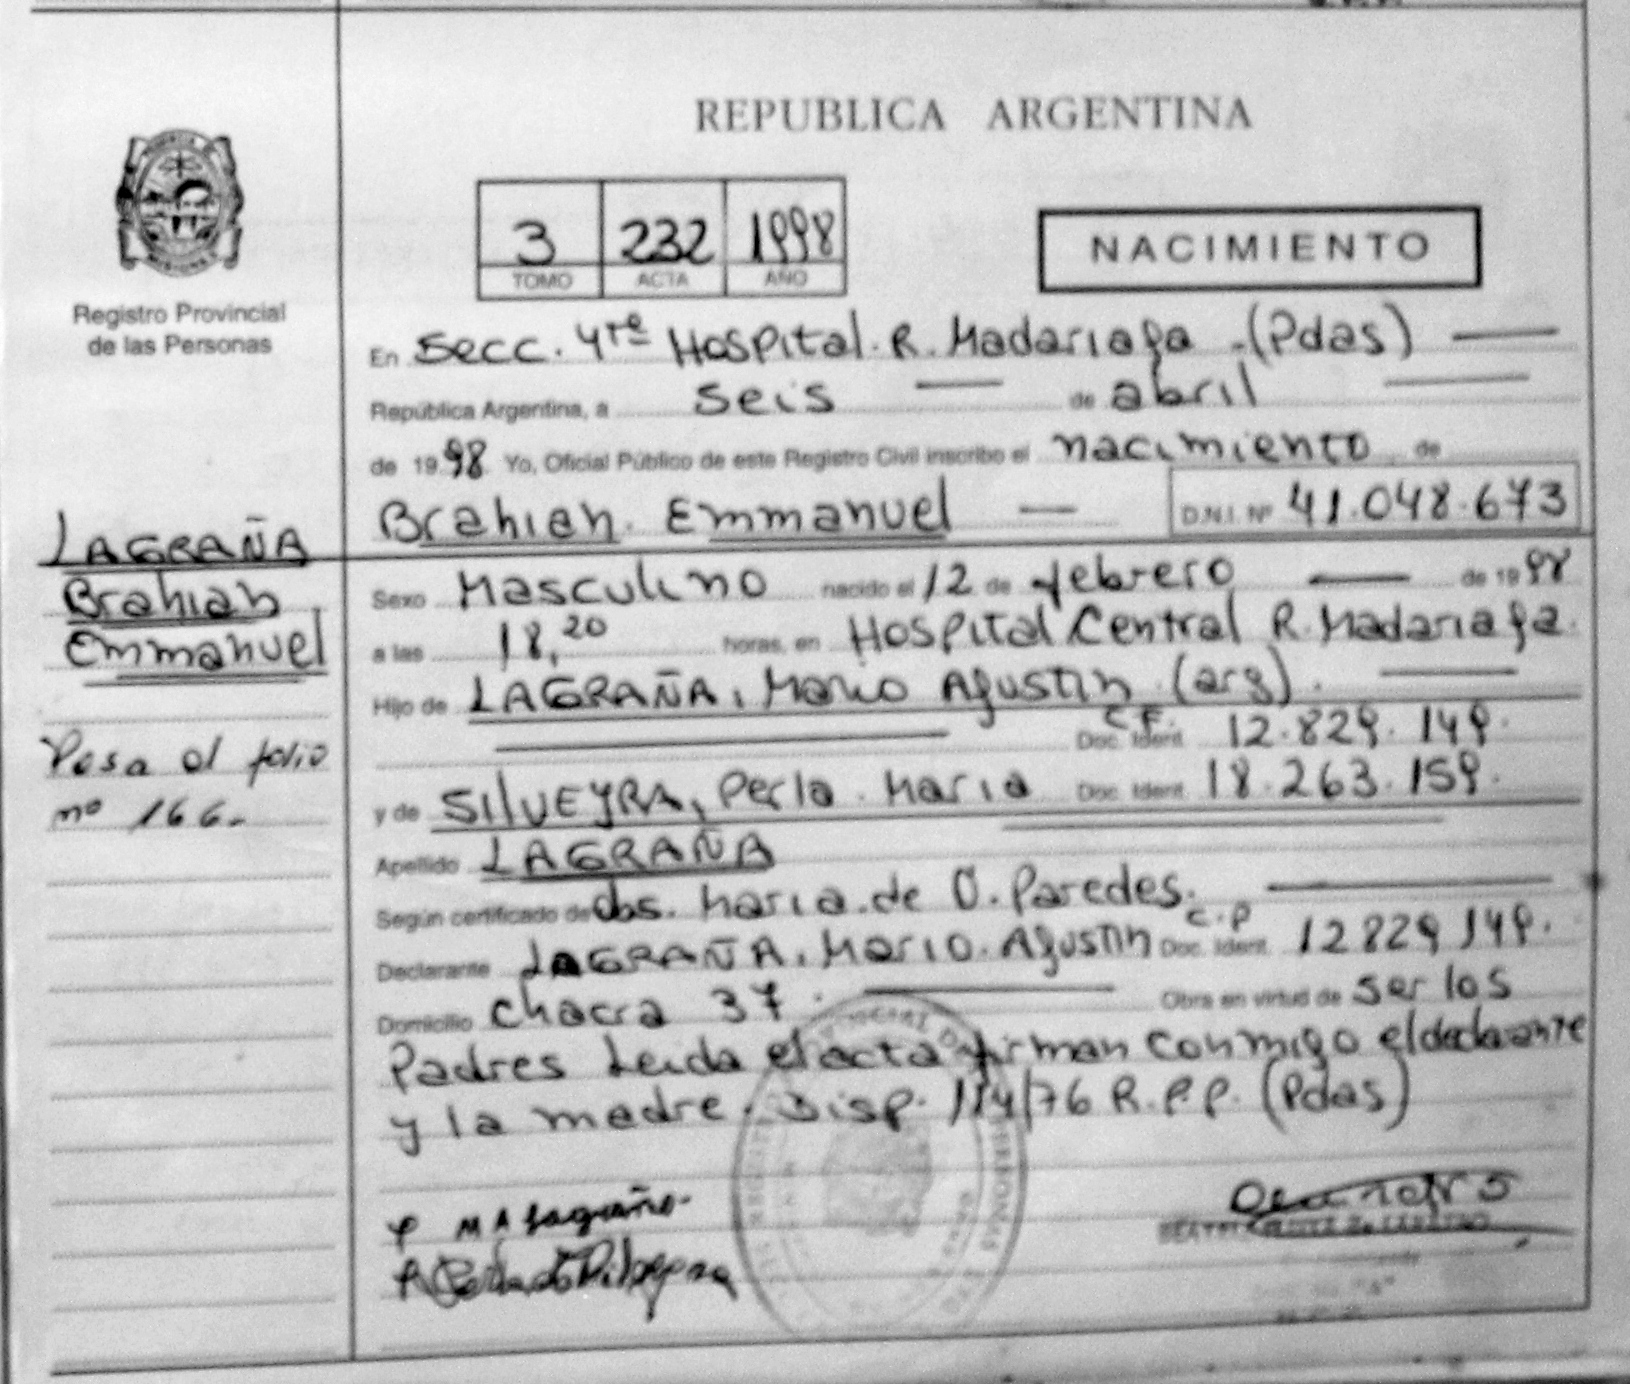 REPUBLICA ARGENTINA
3 232 1998
TOMO ACTA AÑO
NACIMIENTO
Registro Provincial
de las Personas
En Secc. 4ta Hospital. R. Madariaga - (Pdas)
República Argentina, a seis de abril
de 1998 Yo, Oficial Público de este Registro Civil inscribo el nacimiento de
Brahian Emmanuel D.N.I. Nº 41.048.673
LAGRAÑA
Brahian
Emmanuel
Pasa al folio
nº 166.-
Sexo Masculino nacido el 12 de febrero de 1998
a las 18,20 horas, en Hospital Central R. Madariaga.
Hijo de LAGRAÑA, Mario Agustin (arg).
Doc. Ident. 12.829.149.
y de SILVEYRA, Perla Maria Doc. Ident. 18.263.159.
Apellido LAGRAÑA
Según certificado de obs. Maria de O. Paredes.
Declarante LAGRAÑA, Mario Agustin C.P Doc. Ident. 12829149.
Domicilio Chacra 37. Obra en virtud de ser los
Padres Leida el acta firman conmigo el declarante
y la madre. Disp. 114/76 R.P.P. (Pdas)
M A Lagraña.